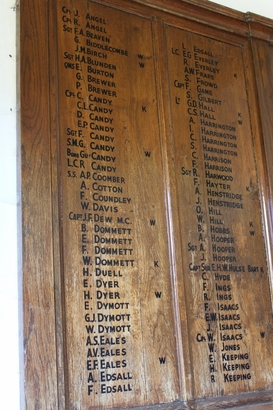 CPL J. ANGEL
CPL R. ANGEL
SGT F.A. BEAFEN
G. BIDDLECOMBE W
J.M. BIRCH
SGT H.A. BLUNDEN W
E. BUXTON
G. BREWER
P. BREWER
CPL C. CANDY
C.L. CANDY K
D. CANDY
E.P. CANDY
SGT F. CANDY
S.M. G. CANDY
BOMB GEO. CANDY W
L.C. R. CANDY
S.S. A.P. COOMBER
A. COTTON
F. COUNDLEY
W. DAVIS
CAPT J.F. DEW M.C. W
B. DOMMETT
E. DOMMETT
F. DOMMETT
W. DOMMETT K
H. DUELL
E. DYER
H. DYER W
E. DYMOTT
G.J. DYMOTT
W. DYMOTT
A.S. EALES
A.V. EALES
E.F. EALES W
A. EDSALL
F. EDSALL
L. EDSALL
L.C. E.G. EVERLEY K
R. EVERLEY
A.W. FRAPE
S. FROWD
CAPT F. GANE
S. GILBERT
LT G.D. HALL
C.S. HALL K
A. HARRINGTON
L. HARRINGTON W
C. HARRINGTON
S. HARRINGTON
C. HARRISON
F. HARRISON
SGT R. HARWOOD
F. HAYTER K
A. HENSTRIDGE
J. HENSTRIDGE
D. HILL
W. HILL K
B. HOBBS W
A. HOOPER
SGT A. HOOPER
J. HOOPER
CAPT SIR E.H.W. HULSE BART K
C. HYDE
F. INGS
R. INGS
F. ISAACS
E.W. ISAACS
J. ISAACS
CPL W. ISAACS W
W. JONES
E. KEEPING
H. KEEPING
R. KEEPING